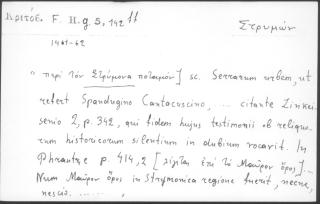 Κριτόβ. F. H. g. 5, 142 ff
Στρυμών
1461-62
"περὶ τὸν Στρύμονα ποταμόν] sc. Serrarum urbem, ut
refert Spandugino Cantacuscino, ... citante Zinkei-
senio 2, p. 342, qui fidem hujus testimonii ob reliquo-
rum historicorum silentium in dubium vocavit. In
Phrantze p. 414,2 [λέγεται ἐπὶ τὸ Μαῦρον ὄρος]...
Num Μαῦρον ὄρος in Strymonica regione fuerit, necne,
nescio. ......